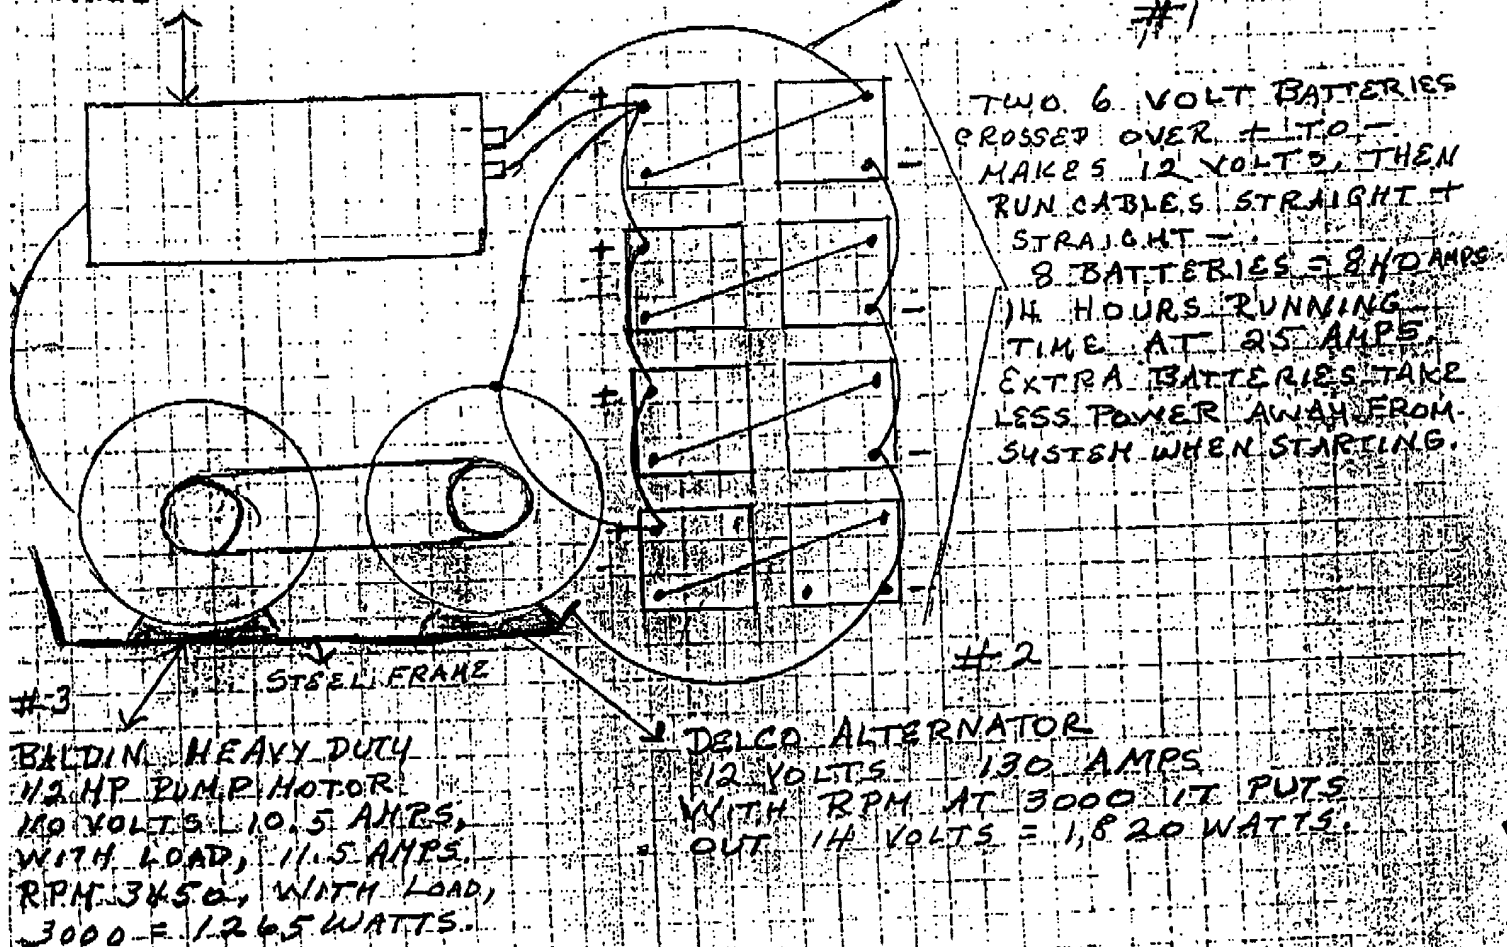 #1
TWO 6 VOLT BATTERIES
CROSSED OVER + TO -
MAKES 12 VOLTS, THEN
RUN CABLES STRAIGHT +
STRAIGHT -.
8 BATTERIES = 840 AMPS
14 HOURS RUNNING
TIME AT 25 AMPS.
EXTRA BATTERIES TAKE
LESS POWER AWAY FROM
SYSTEM WHEN STARTING.
+
-
+
-
+
-
+
-
#2
STEEL FRAME
#3
BALDIN HEAVY DUTY
1/2 HP PUMP MOTOR
110 VOLTS 10.5 AMPS,
WITH LOAD, 11.5 AMPS.
RPM 3450, WITH LOAD,
3000 = 1265 WATTS.
DELCO ALTERNATOR
12 VOLTS 130 AMPS
WITH RPM AT 3000 IT PUTS
OUT 14 VOLTS = 1,820 WATTS.